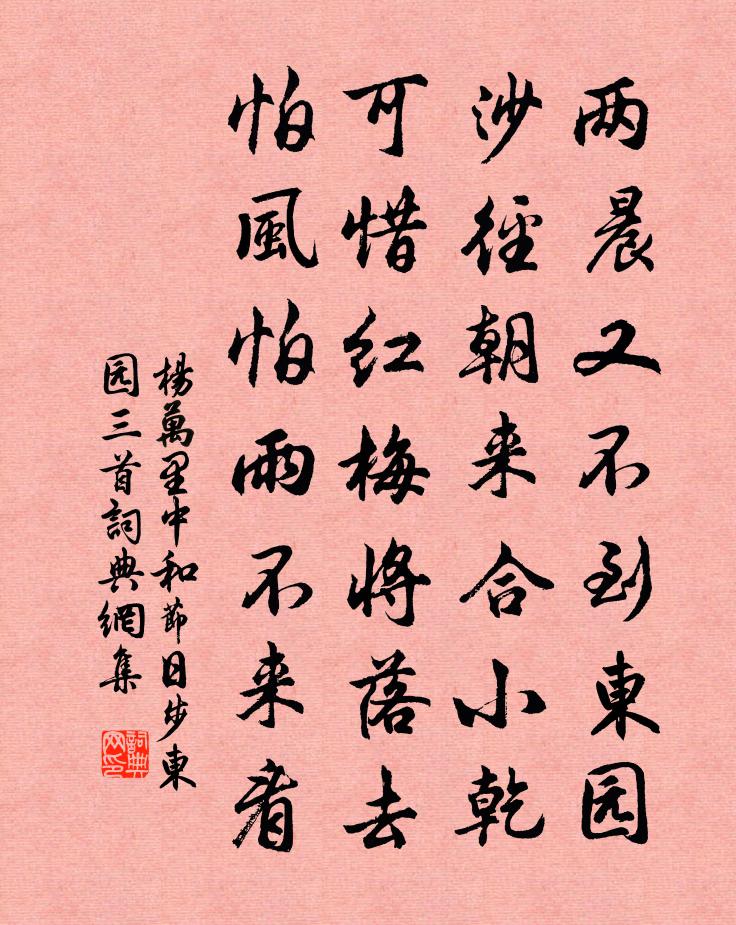 两晨又不到東园
沙徑朝来合小乾
可惜红梅將落去
怕風怕雨不来看
楊萬里中和節日步東
园三首詞典網集
詞典网印